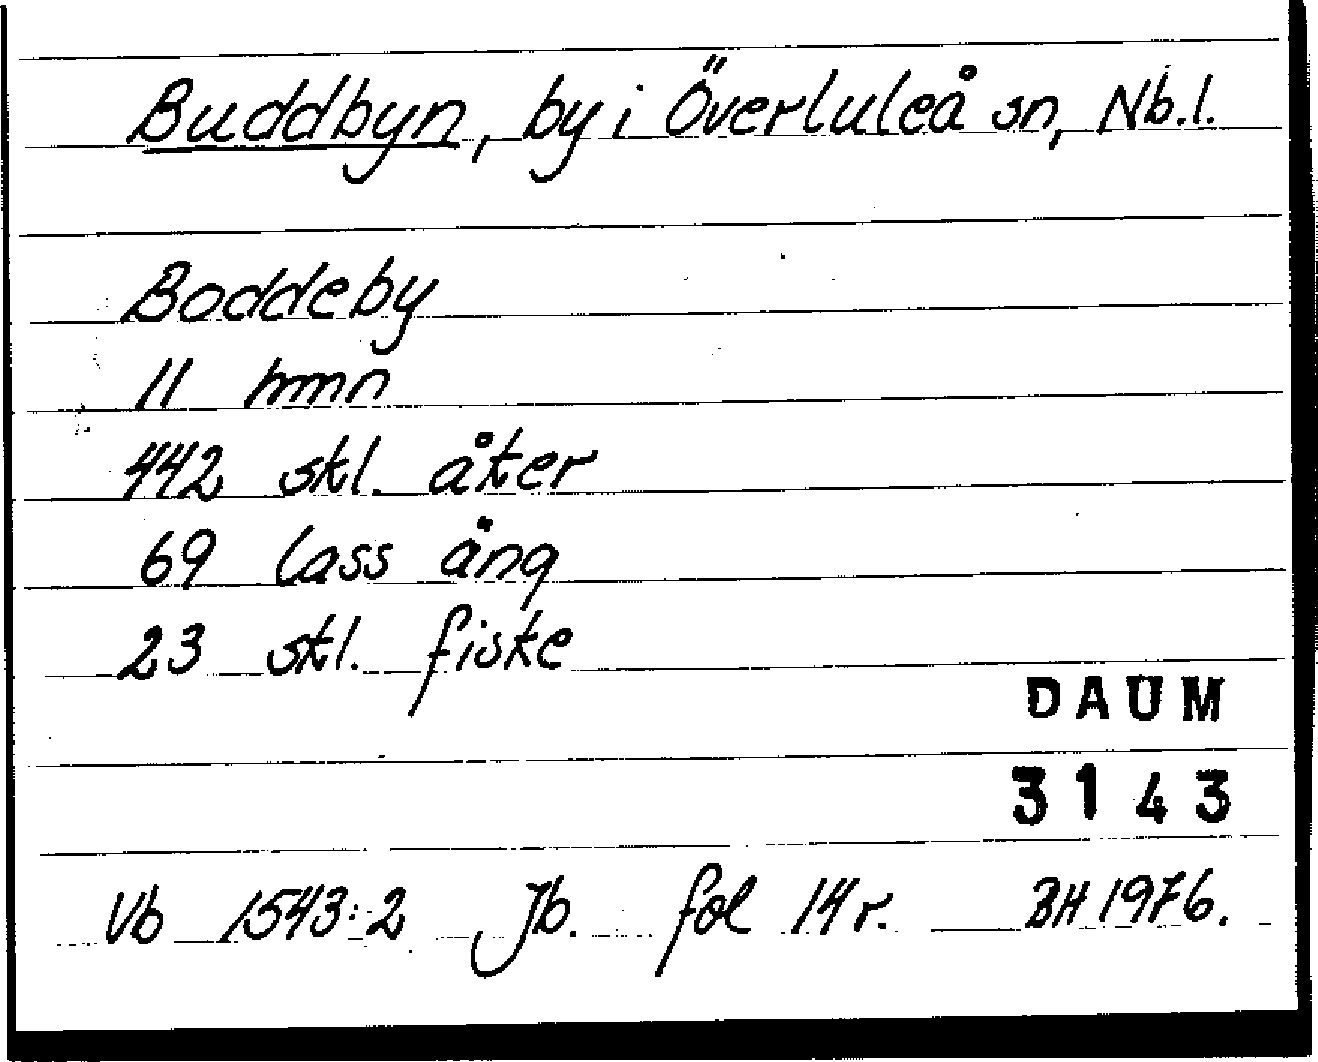 Buddbyn, by i Överluleå sn, Nb.l.
Boddeby
11 hmn
442 skl. åker
69 lass äng
23 skl. fiske
DAUM
3143
Vb 1543:2 Jb. fol 14r. BH 1976.